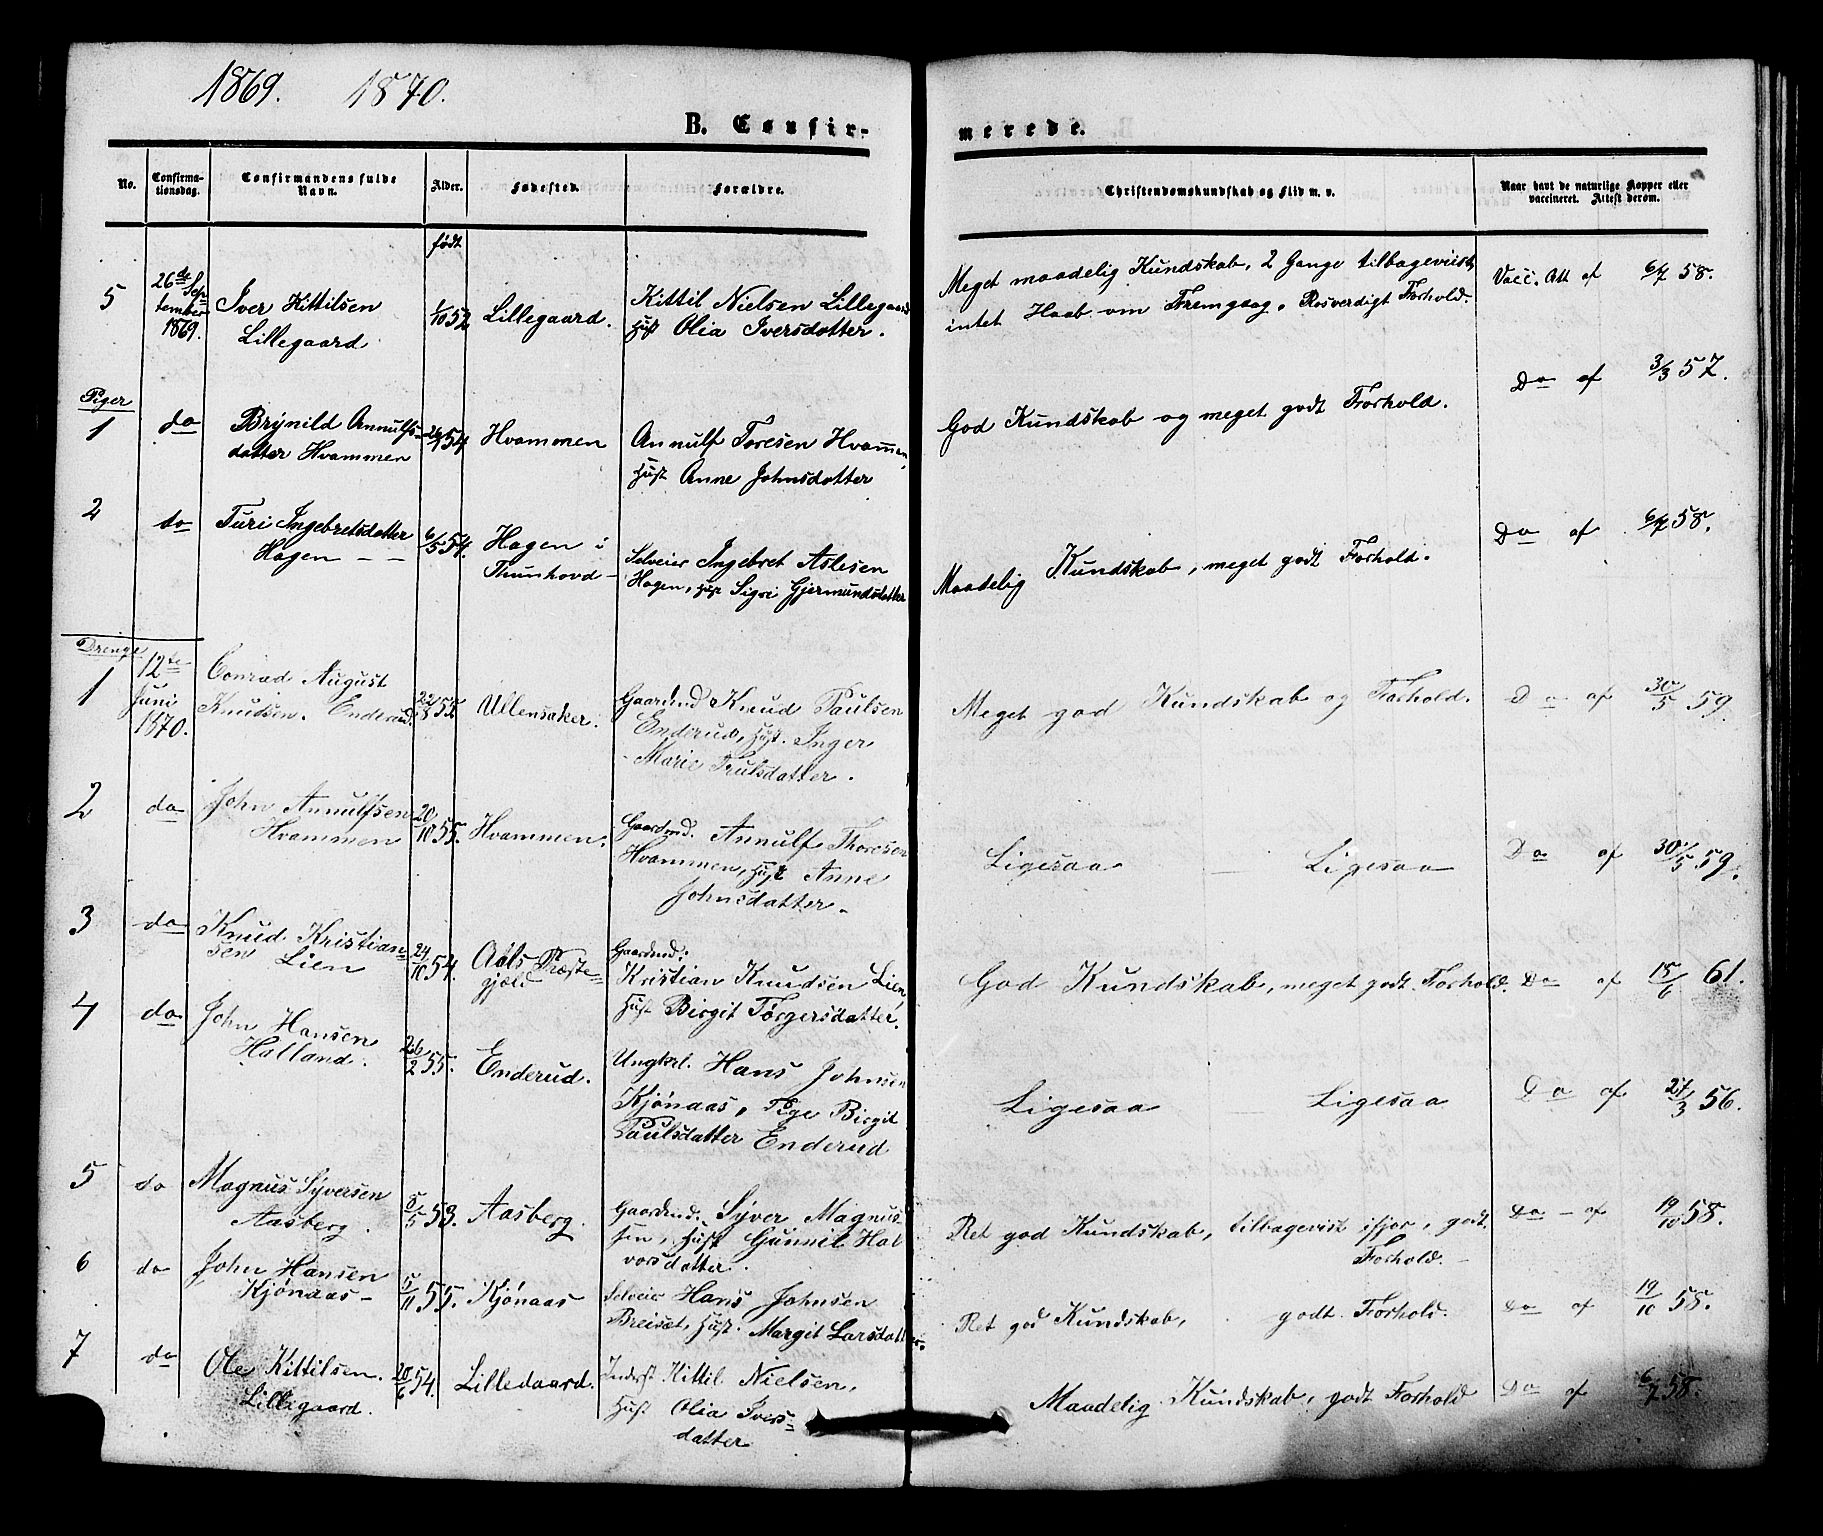 1869. 1870.
B. Confir-
merede.
No.
Confirma-
tionsdag.
Confirmandens fulde
Navn.
Alder.
Fødested.
Forældre.
Christendomskundskab og Flid m. v.
Naar havt de naturlige Kopper eller
vaccineret. Attest derom.
født
5
26de Sep-
tember
1869.
Iver Kittilsen
Lillegaard
1/10 52
Lillegaard.
Kittil Nielsen Lillegaard
Hust Olia Iversdatter.
Meget maadelig Kundskab, 2 Gange tilbageviist,
intet Haab om Fremgang. Rosverdigt Forhold.
Vacc. Att af 6/7 58.
Piger
1
do
Brynild Annulfs-
datter Hvammen
54
Hvammen
Annulf Toresen Hvammen,
Hust Anne Johnsdatter
God Kundskab og meget godt Forhold.
Do af 3/3 57.
2
do
Turi Ingebretsdatter
Hagen - -
6/5 54.
Hagen i
Thunhovd -
Selveier Ingebret Aslesen
Hagen, Hust Sigri Gjermundsdatter
Maadelig Kundskab, meget godt Forhold.
Do af 6/7 58.
Drenge
1
12te
Juni
1870.
Conrad August
Knudsen. Enderud.
Ullensaker.
Gaardmd Knud Paulsen
Enderud, Hust. Inger
Marie Trulsdatter.
Meget god Kundskab og Forhold.
Do af 30/5 59.
2
do
John Annulfsen
Hvammen
20/10 55.
Hvammen.
Gaardmd. Annulf Thoresen
Hvammen, Hust Anne
Johnsdatter.
Ligesaa - Ligesaa
Do af 30/5 59.
3
do
Knud Kristian-
sen Lien
24/10 54.
Aals Præste-
gjæld
Gaardmd.
Kristian Knudsen Lien
Hust Birgit Torgersdatter.
God Kundskab, meget godt Forhold.
Do af 15/6 61.
4
do
John Hansen
Halland.
26/2 55.
Enderud.
Ungkrl. Hans Johnsen
Kjønaas, Pige Birgit
Paulsdatter Enderud
Ligesaa - Ligesaa
Do af 27/3 56.
5
do
Magnus Syversen
Aasberg.
8/5 53.
Aasberg.
Gaardmd. Syver Magnus-
sen, Hust Gunnil Hal
vorsdatter.
Ret god Kundskab, tilbagevist ifjor, godt
Forhold.
Do - af 19/10 58.
6
do
John Hansen
Kjønaas -
5/11 55.
Kjønaas
Selveier Hans Johnsen
Breiset, Hust. Margit Larsdatter.
Ret god Kundskab, godt Forhold.
Do af 19/10 58.
7
do
Ole Kittilsen.
Lillegaard.
20/6 54.
Lilledaard.
Inderst Kittil Nielsen,
Hust Olia Ivers-
datter
Maadelig Kundskab, godt Forhold
Do af 6/7 58.